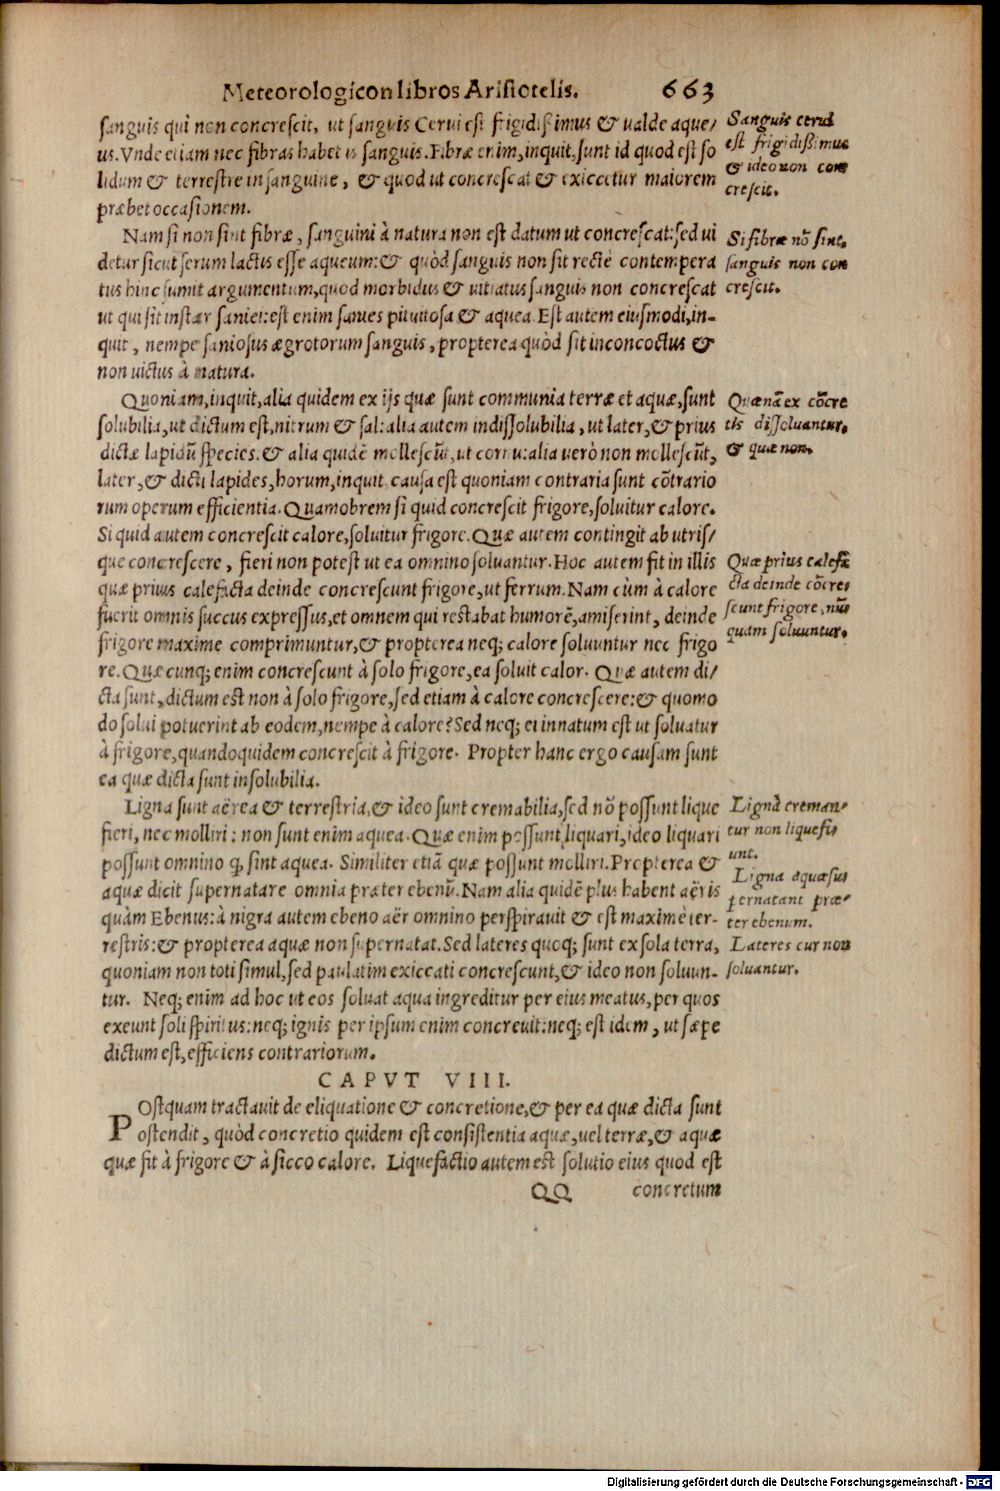 Meteorologicon libros Aristotelis. 663
sanguis qui non concrescit, ut sanguis Cerui est frigidißimus & ualde aque/
us. Vnde etiam nec fibras habet is sanguis. Fibræ enim, inquit, sunt id quod est so
lidum & terrestre in sanguine, & quod ut concrescat & exiccetur maiorem
præbet occasionem.
Sanguis cerui
est frigidißimus
& ideo non con
crescit.
Nam si non sint fibræ, sanguini à natura non est datum ut concrescat: sed ui
detur sicut serum lactis esse aqueum: & quòd sanguis non sit rectè contempera
tus hinc sumit argumentum, quod morbidus & uitiatus sanguis non concrescat
ut qui sit instar saniei: est enim sanies pituitosa & aquea. Est autem eiusmodi, in-
quit, nempe saniosus ægrotorum sanguis, propterea quòd sit inconcoctus &
non uictus à natura.
Si fibræ nō sint,
sanguis non con
crescit.
Quoniam, inquit, alia quidem ex ijs quæ sunt communia terræ et aquæ, sunt
solubilia, ut dictum est, nitrum & sal: alia autem indissolubilia, ut later, & prius
dictæ lapidū species. & alia quidē mollescūt, ut cornu: alia uerò non mollescūt,
later, & dicti lapides, horum, inquit, causa est quoniam contraria sunt cōtrario
rum operum efficientia. Quamobrem si quid concrescit frigore, soluitur calore.
Si quid autem concrescit calore, soluitur frigore. Quæ autem contingit ab utris/
que concrescere, fieri non potest ut ea omnino soluantur. Hoc autem fit in illis
quæ prius calefacta deinde concrescunt frigore, ut ferrum. Nam cùm à calore
fuerit omnis succus expressus, et omnem qui restabat humorē, amiserint, deinde
frigore maxime comprimuntur, & propterea neq; calore soluuntur nec frigo
re. Quæcunq; enim concrescunt à solo frigore, ea soluit calor. Quæ autem di/
cta sunt, dictum est non à solo frigore, sed etiam à calore concrescere: & quomo
do solui potuerint ab eodem, nempe à calore? Sed neq; ei innatum est ut soluatur
à frigore, quandoquidem concrescit à frigore. Propter hanc ergo causam sunt
ea quæ dicta sunt insolubilia.
Quænā ex cōcre
tis dissoluantur,
& quæ non.
Quæ prius calefa
cta deinde cōcres
scunt frigore, nū
quam soluuntur.
Ligna sunt aërea & terrestria, & ideo sunt cremabilia, sed nō possunt lique
fieri, nec molliri: non sunt enim aquea. Quæ enim possunt liquari, ideo liquari
possunt omnino q, sint aquea. Similiter etiā quæ possunt molliri. Propterea &
aquæ dicit supernatare omnia præter ebenū. Nam alia quidē plus habent aëris
quàm Ebenus: à nigra autem ebeno aër omnino perspirauit & est maximè ter-
restris: & propterea aquæ non supernatat. Sed lateres quoq; sunt ex sola terra,
quoniam non toti simul, sed paulatim exiccati concrescunt, & ideo non soluun-
tur. Neq; enim ad hoc ut eos soluat aqua ingreditur per eius meatus, per quos
exeunt soli spiritus: neq; ignis per ipsum enim concreuit: neq; est idem, ut sæpe
dictum est, efficiens contrariorum.
Ligna creman-
tur non liquefi
unt.
Ligna aquæ su
pernatant præ-
ter ebenum.
Lateres cur non
soluantur.
CAPVT VIII.
POstquam tractauit de eliquatione & concretione, & per ea quæ dicta sunt
ostendit, quòd concretio quidem est consistentia aquæ, uel terræ, & aquæ
quæ fit à frigore & à sicco calore. Liquefactio autem est solutio eius quod est
QQ concretum
Digitalisierung gefördert durch die Deutsche Forschungsgemeinschaft - DFG